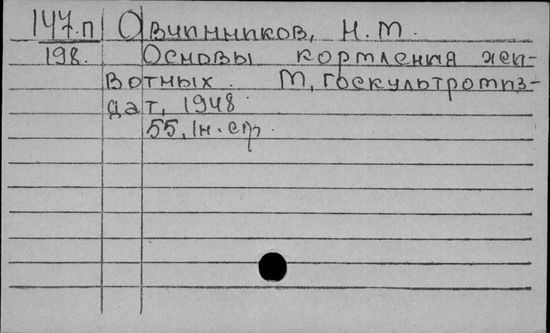 147.п Овчинников, Н. М.
198. Основы кормления жи-
вотных. М, Госкультпросвиз-
дат, 1948
55, 1н. стр.